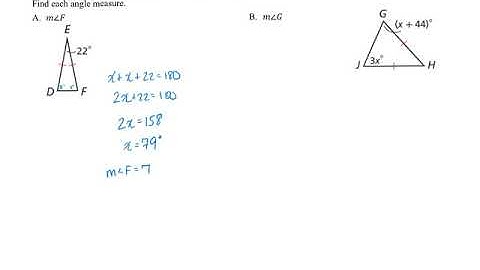 Find each angle measure.
A. m∠F
B. m∠G
E
22°
D
x°
x°
F
x+x+22=180
2x+22=180
2x=158
x=79°
m∠F=7
G
(x + 44)°
J
3x°
H